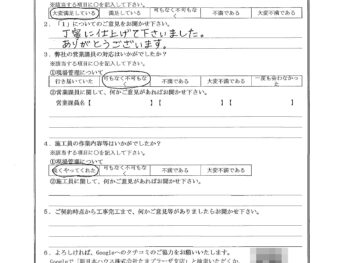 ※該当する項目に○を記入して下さい。
大変満足している 満足している 可もなく不可もなく 不満である 大変不満である
2．「1」についてのご意見をお聞かせ下さい。
丁寧に仕上げて下さいました。
ありがとうございます。
3．弊社の営業課員の対応はいかがでしたか？
※該当する項目に○を記入して下さい。
①現場管理について
行き届いていた 可もなく不可もなく 不満である 大変不満である 一度も会わなかった
②営業課員に関して、何かご意見があればお聞かせ下さい。
営業課員名【 】【 】【 】
4．施工員の作業内容等はいかがでしたか？
※該当する項目に○を記入して下さい。
①現場管理について
良くやってくれた 可もなく不可もなく 不満である 大変不満である
②施工員に関して、何かご意見があればお聞かせ下さい。
5．ご契約時点から工事完工まで、何かご意見等がありましたらお聞かせ下さい。
6．よろしければ、Googleへのクチコミのご協力をお願いいたします。